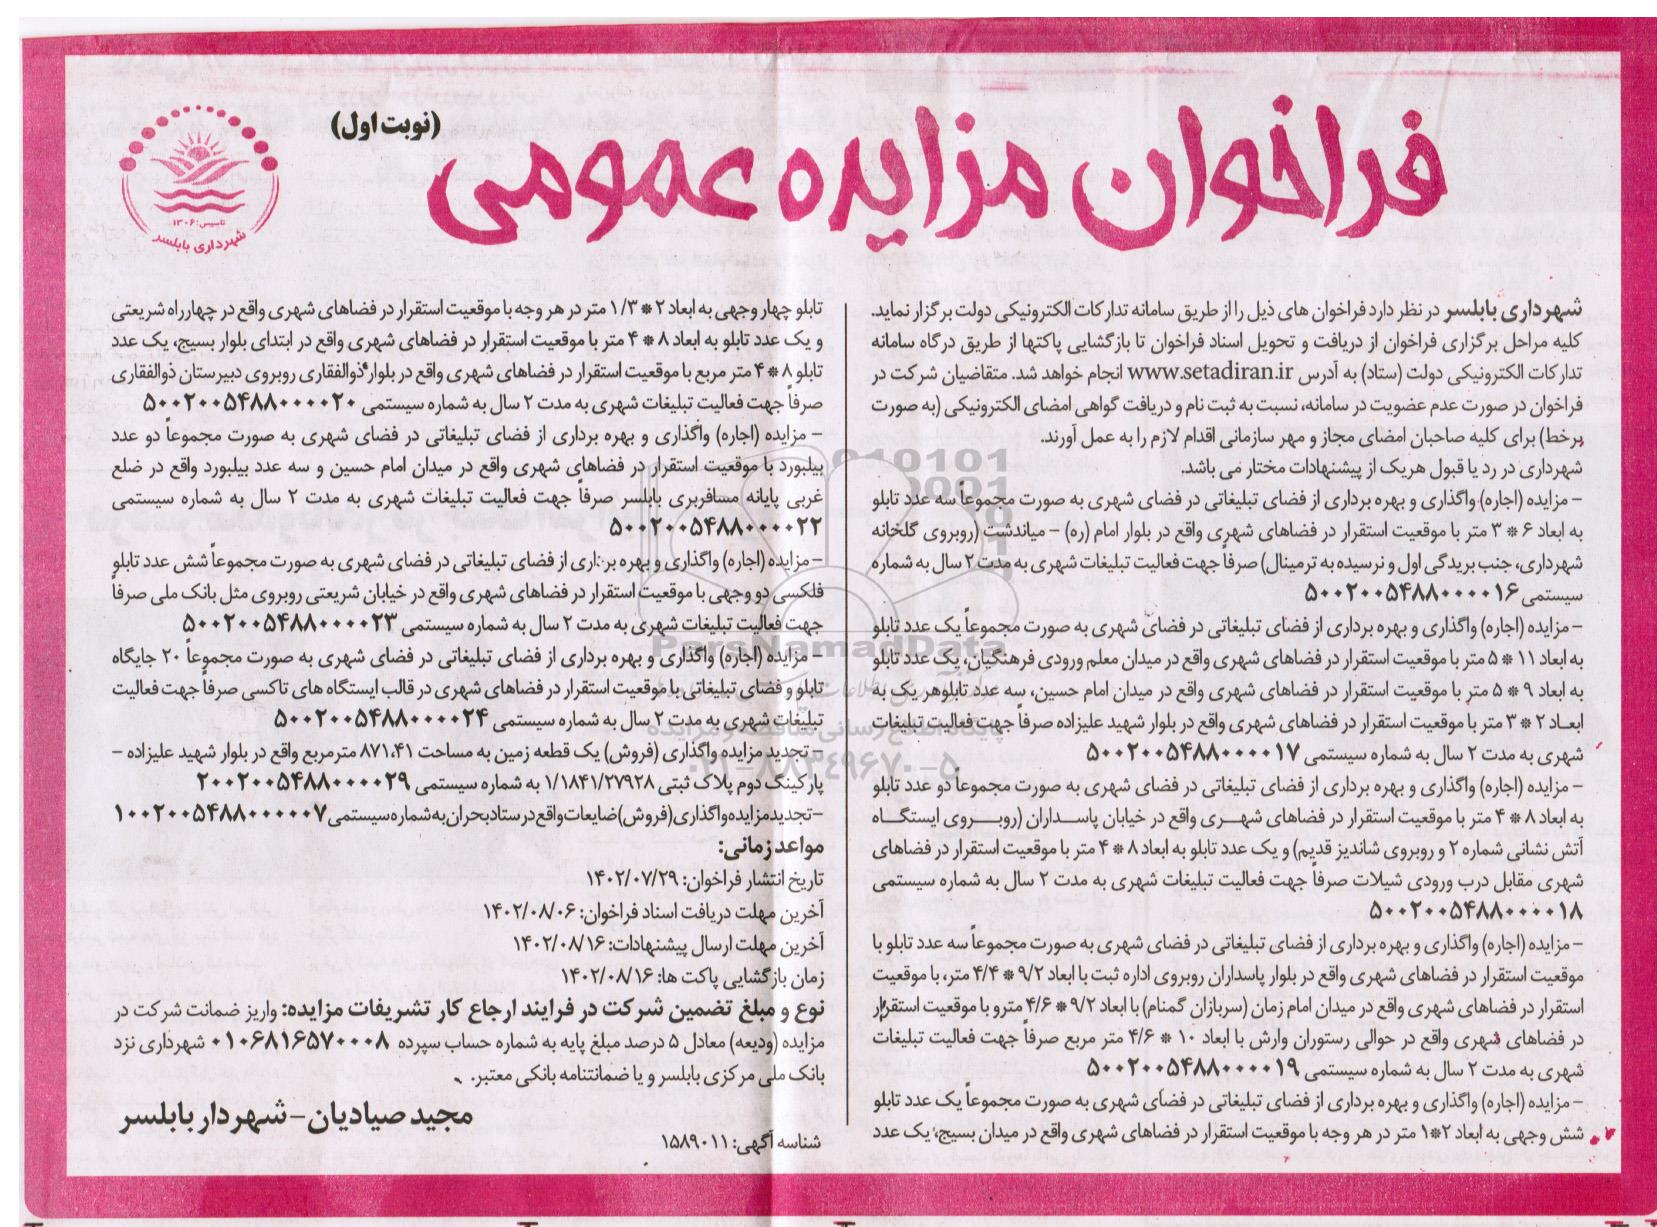 فراخوان مزایده عمومی
(نوبت اول)
تاسیس: ۱۳۰۶
شهرداری بابلسر
شهرداری بابلسر در نظر دارد فراخوان های ذیل را از طریق سامانه تدارکات الکترونیکی دولت برگزار نماید.
کلیه مراحل برگزاری فراخوان از دریافت و تحویل اسناد فراخوان تا بازگشایی پاکتها از طریق درگاه سامانه
تدارکات الکترونیکی دولت (ستاد) به آدرس www.setadiran.ir انجام خواهد شد. متقاضیان شرکت در
فراخوان در صورت عدم عضویت در سامانه، نسبت به ثبت نام و دریافت گواهی امضای الکترونیکی (به صورت
برخط) برای کلیه صاحبان امضای مجاز و مهر سازمانی اقدام لازم را به عمل آورند.
شهرداری در رد یا قبول هریک از پیشنهادات مختار می باشد.
- مزایده (اجاره) واگذاری و بهره برداری از فضای تبلیغاتی در فضای شهری به صورت مجموعاً سه عدد تابلو
به ابعاد ۶ * ۳ متر با موقعیت استقرار در فضاهای شهری واقع در بلوار امام (ره) – میاندشت (روبروی گلخانه
شهرداری، جنب بریدگی اول و نرسیده به ترمینال) صرفاً جهت فعالیت تبلیغات شهری به مدت ۲ سال به شماره
سیستمی ۵۰۰۲۰۰۵۴۸۸۰۰۰۰۱۶
- مزایده (اجاره) واگذاری و بهره برداری از فضای تبلیغاتی در فضای شهری به صورت مجموعاً یک عدد تابلو
به ابعاد ۱۱ * ۵ متر با موقعیت استقرار در فضاهای شهری واقع در میدان معلم ورودی فرهنگیان، یک عدد تابلو
به ابعاد ۹ * ۵ متر با موقعیت استقرار در فضاهای شهری واقع در میدان امام حسین، سه عدد تابلوهر یک به
ابعاد ۲ * ۳ متر با موقعیت استقرار در فضاهای شهری واقع در بلوار شهید علیزاده صرفاً جهت فعالیت تبلیغات
شهری به مدت ۲ سال به شماره سیستمی ۵۰۰۲۰۰۵۴۸۸۰۰۰۰۱۷
- مزایده (اجاره) واگذاری و بهره برداری از فضای تبلیغاتی در فضای شهری به صورت مجموعاً دو عدد تابلو
به ابعاد ۸ * ۴ متر با موقعیت استقرار در فضاهای شهری واقع در خیابان پاسداران (روبروی ایستگاه
آتش نشانی شماره ۲ و روبروی شاندیز قدیم) و یک عدد تابلو به ابعاد ۸ * ۴ متر با موقعیت استقرار در فضاهای
شهری مقابل درب ورودی شیلات صرفاً جهت فعالیت تبلیغات شهری به مدت ۲ سال به شماره سیستمی
۵۰۰۲۰۰۵۴۸۸۰۰۰۰۱۸
- مزایده (اجاره) واگذاری و بهره برداری از فضای تبلیغاتی در فضای شهری به صورت مجموعاً سه عدد تابلو با
موقعیت استقرار در فضاهای شهری واقع در بلوار پاسداران روبروی اداره ثبت با ابعاد ۹/۲ * ۴/۴ متر، با موقعیت
استقرار در فضاهای شهری واقع در میدان امام زمان (سربازان گمنام) با ابعاد ۹/۲ * ۴/۶ مترو با موقعیت استقرار
در فضاهای شهری واقع در حوالی رستوران وارش با ابعاد ۱۰ * ۴/۶ متر مربع صرفاً جهت فعالیت تبلیغات
شهری به مدت ۲ سال به شماره سیستمی ۵۰۰۲۰۰۵۴۸۸۰۰۰۰۱۹
- مزایده (اجاره) واگذاری و بهره برداری از فضای تبلیغاتی در فضای شهری به صورت مجموعاً یک عدد تابلو
شش وجهی به ابعاد ۲*۱ متر در هر وجه با موقعیت استقرار در فضاهای شهری واقع در میدان بسیج، یک عدد
تابلو چهار وجهی به ابعاد ۲ * ۱/۳ متر در هر وجه با موقعیت استقرار در فضاهای شهری واقع در چهارراه شریعتی
و یک عدد تابلو به ابعاد ۸ * ۴ متر با موقعیت استقرار در فضاهای شهری واقع در ابتدای بلوار بسیج، یک عدد
تابلو ۸ * ۴ متر مربع با موقعیت استقرار در فضاهای شهری واقع در بلوار ذوالفقاری روبروی دبیرستان ذوالفقاری
صرفاً جهت فعالیت تبلیغات شهری به مدت ۲ سال به شماره سیستمی ۵۰۰۲۰۰۵۴۸۸۰۰۰۰۲۰
- مزایده (اجاره) واگذاری و بهره برداری از فضای تبلیغاتی در فضای شهری به صورت مجموعاً دو عدد
بیلبورد با موقعیت استقرار در فضاهای شهری واقع در میدان امام حسین و سه عدد بیلبورد واقع در ضلع
غربی پایانه مسافربری بابلسر صرفاً جهت فعالیت تبلیغات شهری به مدت ۲ سال به شماره سیستمی
۵۰۰۲۰۰۵۴۸۸۰۰۰۰۲۲
- مزایده (اجاره) واگذاری و بهره برداری از فضای تبلیغاتی در فضای شهری به صورت مجموعاً شش عدد تابلو
فلکسی دو وجهی با موقعیت استقرار در فضاهای شهری واقع در خیابان شریعتی روبروی مثل بانک ملی صرفاً
جهت فعالیت تبلیغات شهری به مدت ۲ سال به شماره سیستمی ۵۰۰۲۰۰۵۴۸۸۰۰۰۰۲۳
- مزایده (اجاره) واگذاری و بهره برداری از فضای تبلیغاتی در فضای شهری به صورت مجموعاً ۲۰ جایگاه
تابلو و فضای تبلیغاتی با موقعیت استقرار در فضاهای شهری در قالب ایستگاه های تاکسی صرفاً جهت فعالیت
تبلیغات شهری به مدت ۲ سال به شماره سیستمی ۵۰۰۲۰۰۵۴۸۸۰۰۰۰۲۴
- تجدید مزایده واگذاری (فروش) یک قطعه زمین به مساحت ۸۷۱.۴۱ مترمربع واقع در بلوار شهید علیزاده –
پارکینگ دوم پلاک ثبتی ۱/۱۸۴۱/۲۷۹۲۸ به شماره سیستمی ۲۰۰۲۰۰۵۴۸۸۰۰۰۰۲۹
- تجدید مزایده واگذاری (فروش) ضایعات واقع در ستاد بحران به شماره سیستمی ۱۰۰۲۰۰۵۴۸۸۰۰۰۰۰۷
مواعد زمانی:
تاریخ انتشار فراخوان: ۱۴۰۲/۰۷/۲۹
آخرین مهلت دریافت اسناد فراخوان: ۱۴۰۲/۰۸/۰۶
آخرین مهلت ارسال پیشنهادات: ۱۴۰۲/۰۸/۱۶
زمان بازگشایی پاکت ها: ۱۴۰۲/۰۸/۱۶
نوع و مبلغ تضمین شرکت در فرایند ارجاع کار تشریفات مزایده: واریز ضمانت شرکت در
مزایده (ودیعه) معادل ۵ درصد مبلغ پایه به شماره حساب سپرده ۰۱۰۶۸۱۶۵۷۰۰۰۸ شهرداری نزد
بانک ملی مرکزی بابلسر و یا ضمانتنامه بانکی معتبر.
مجید صیادیان – شهردار بابلسر
شناسه آگهی: ۱۵۸۹۰۱۱
ParsNamadData
پایگاه اطلاع رسانی مناقصه و مزایده
۰۲۱-۸۸۳۴۹۶۷۰-۵